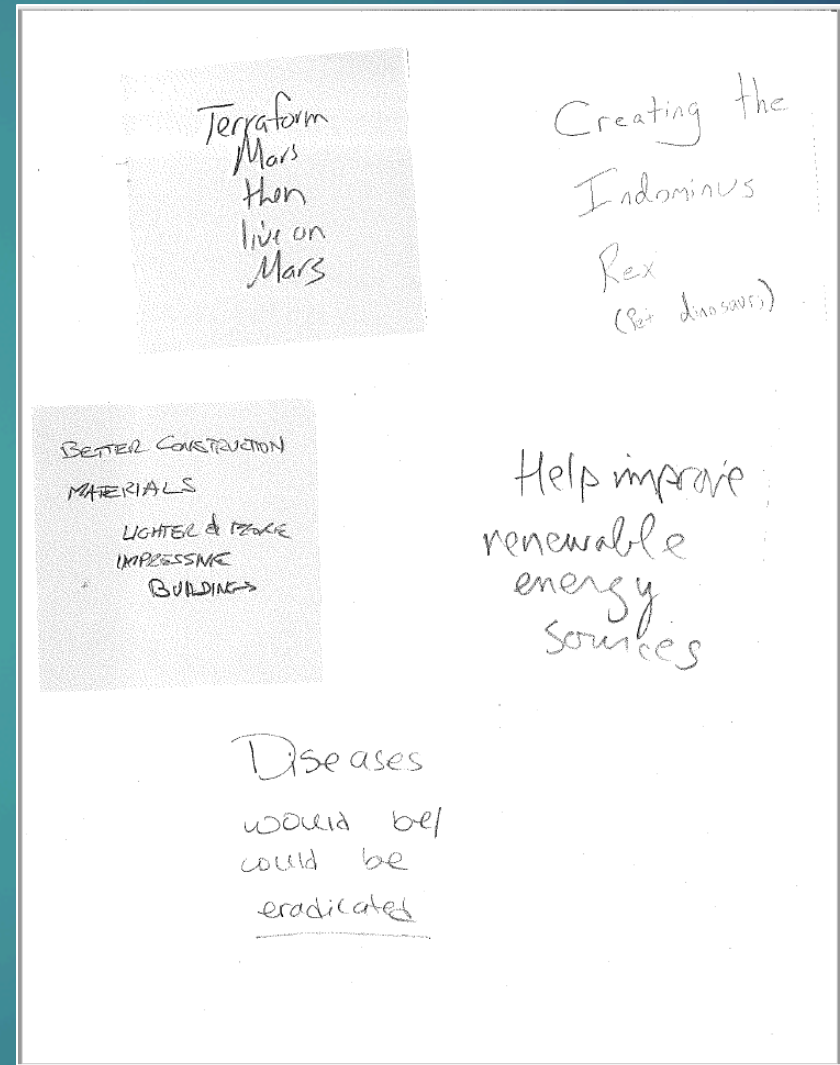 Terraform
Mars
then
live on
Mars
Creating the
Indominus
Rex
(Pet dinosaurs)
BETTER CONSTRUCTION
MATERIALS
LIGHTER & MORE
IMPRESSIVE
BUILDINGS
Help improve
renewable
energy
sources
Diseases
would be/
could be
eradicated